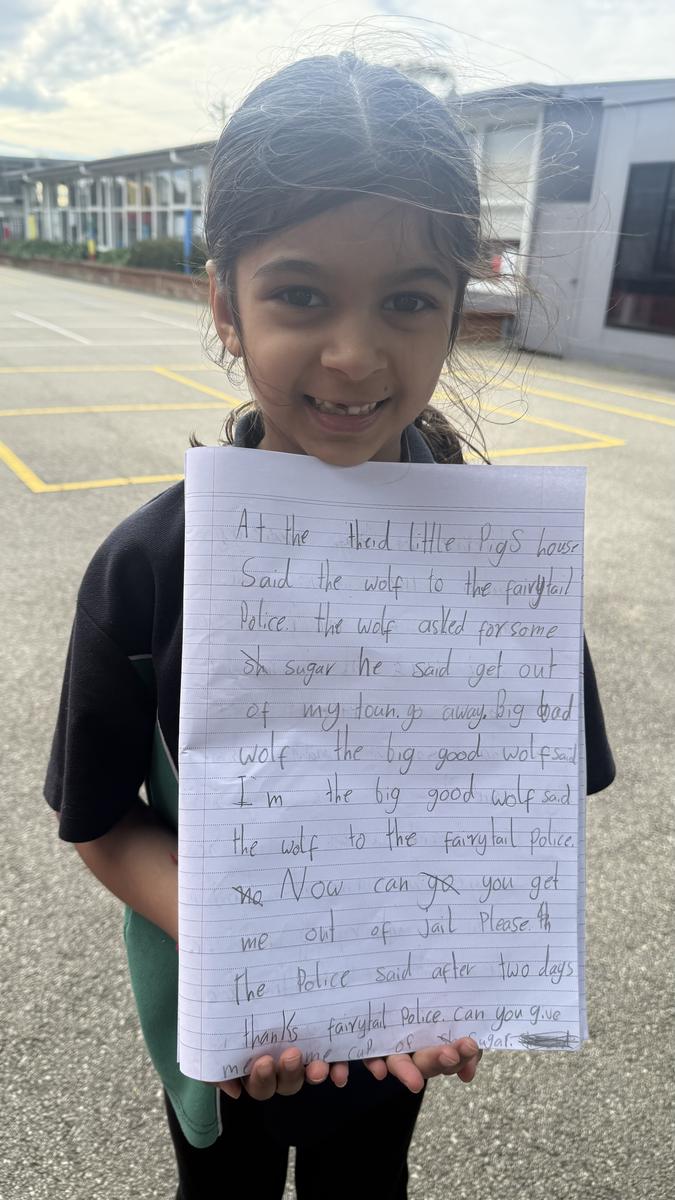 At the theid little Pigs house
Said the wolf to the fairytail
Police. the wolf asked for some
sugar he said get out
of my toun. go away. Big bad
wolf the big good wolf said
I'm the big good wolf said
the wolf to the fairytail Police.
no Now can go you get
me out of jail Please. th
the Police said after two days
thanks fairytail Police. can you give
me cup of sugar.